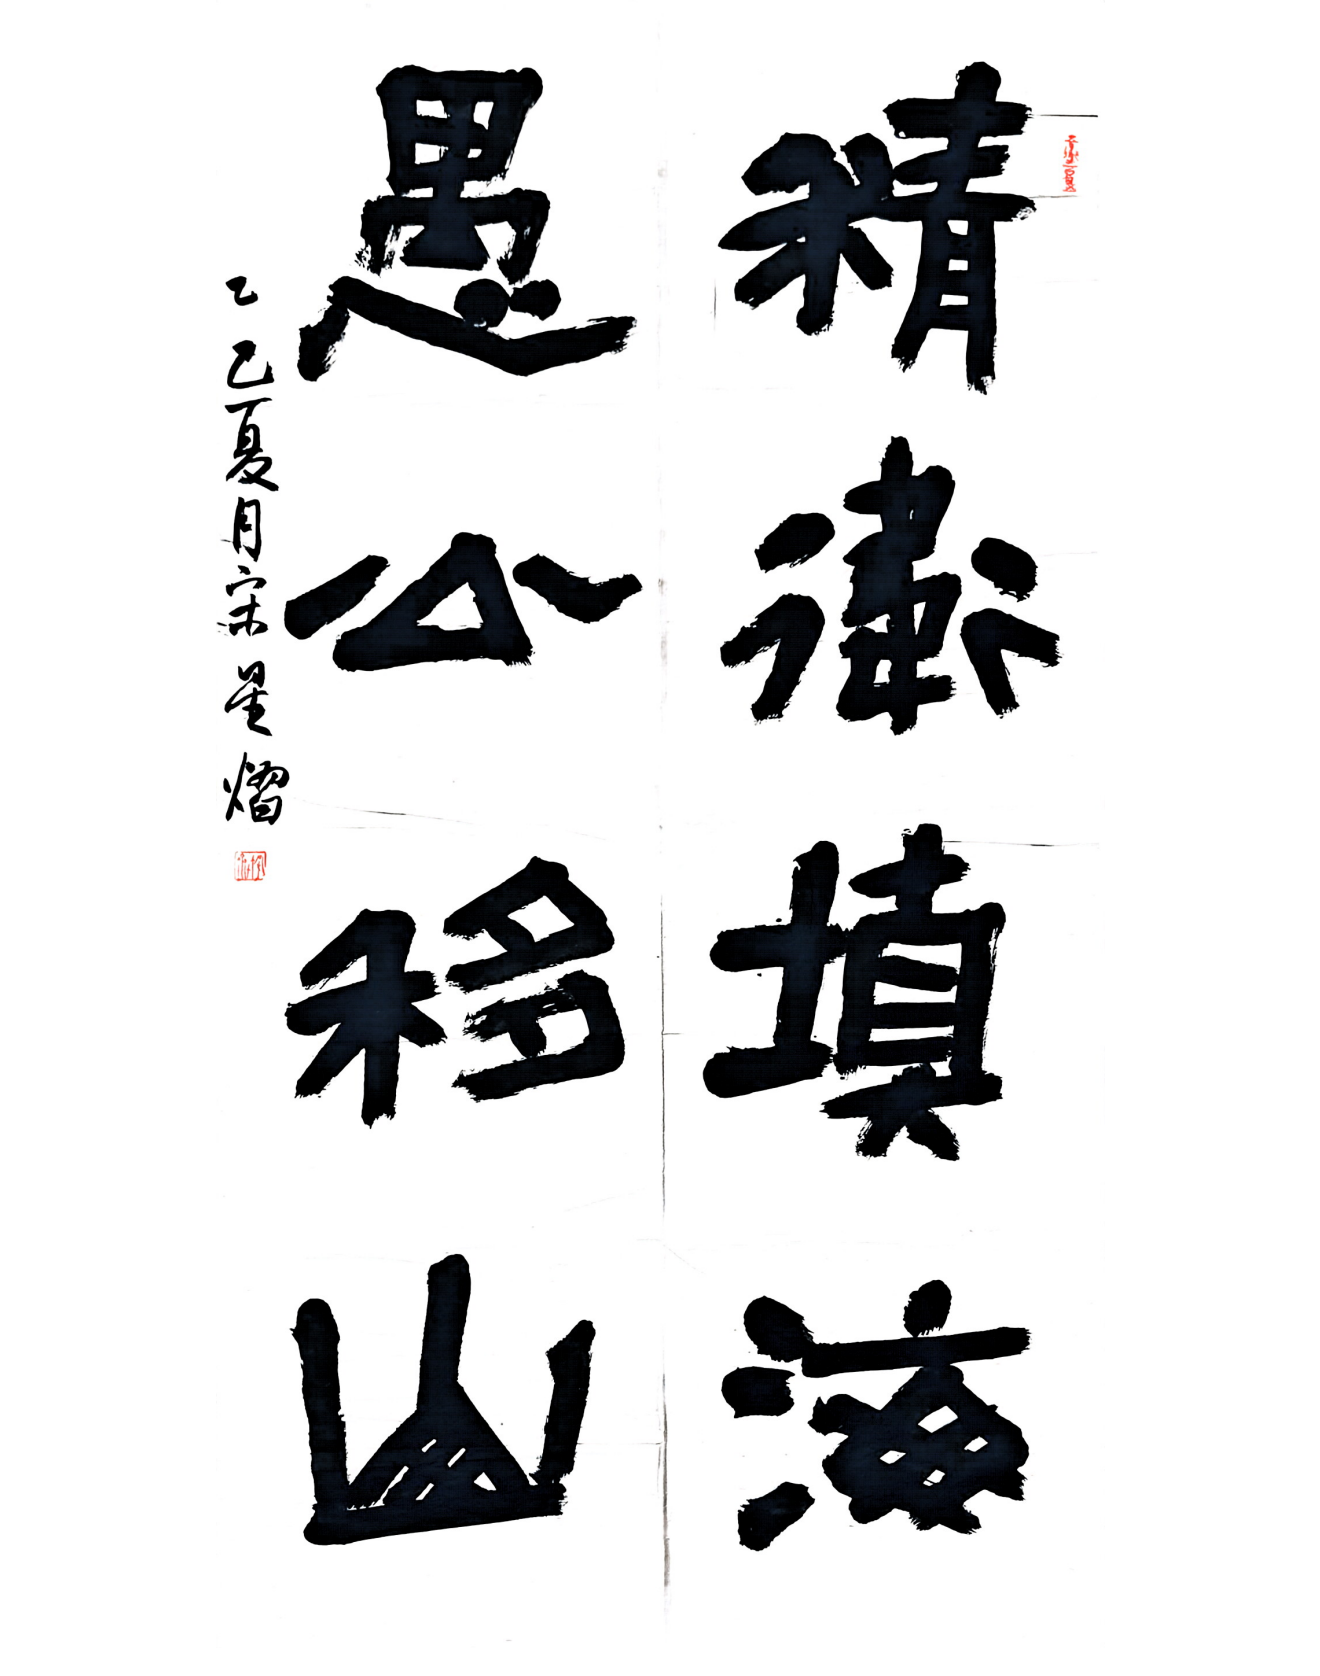 精衛填海
愚公移山
乙巳夏月宋星熠